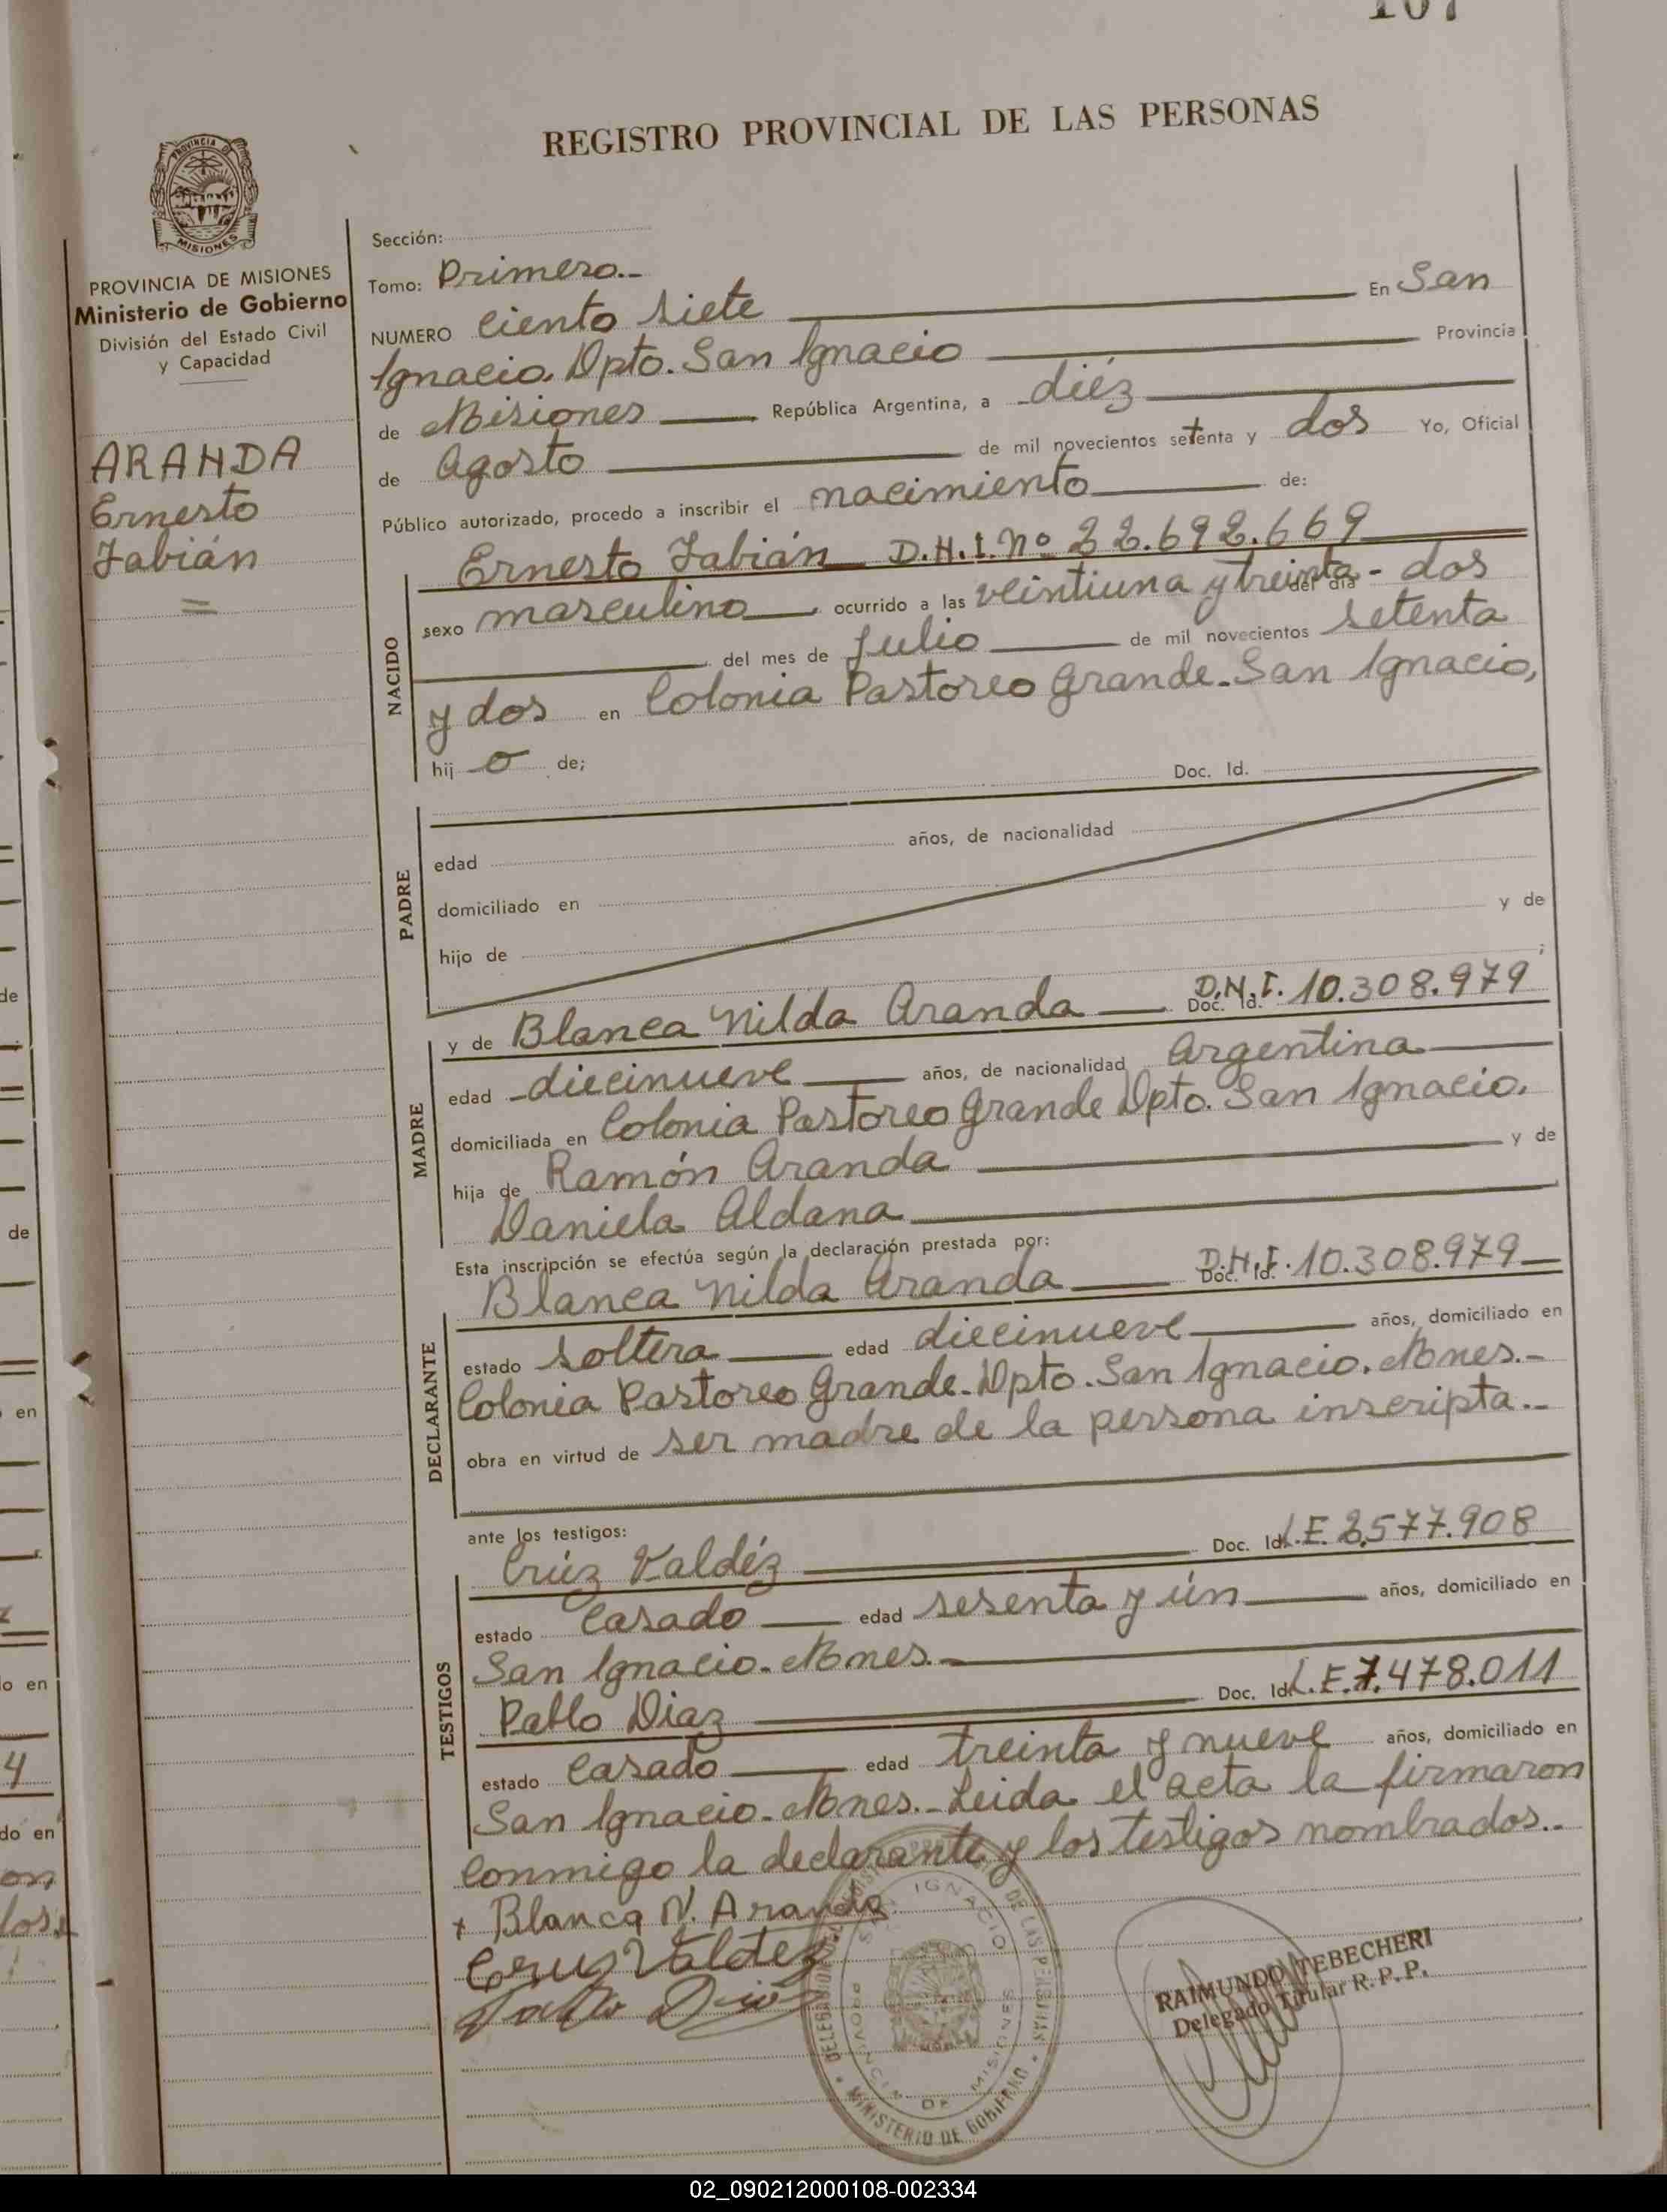 107
REGISTRO PROVINCIAL DE LAS PERSONAS
PROVINCIA DE
MISIONES
PROVINCIA DE MISIONES
Ministerio de Gobierno
División del Estado Civil
y Capacidad
ARANDA
Ernesto
Fabián
=
Sección:
Tomo: Primero.-
NUMERO Ciento siete En San
Ignacio, Dpto. San Ignacio Provincia
de Misiones República Argentina, a diéz
de Agosto de mil novecientos setenta y dos Yo, Oficial
Público autorizado, procedo a inscribir el nacimiento de:
Ernesto Fabián D.N.I. Nº 22.692.669
NACIDO
sexo masculino ocurrido a las veintiuna y treinta del día - dos
del mes de Julio de mil novecientos setenta
y dos en Colonia Pastoreo Grande. San Ignacio,
hij o de;
PADRE
Doc. Id.
edad años, de nacionalidad
domiciliado en
hijo de y de
;
MADRE
y de Blanca Nilda Aranda Doc. Id. D.N.I. 10.308.979
edad diecinueve años, de nacionalidad Argentina
domiciliada en Colonia Pastoreo Grande Dpto. San Ignacio.
hija de Ramón Aranda y de
Daniela Aldana
Esta inscripción se efectúa según la declaración prestada por:
DECLARANTE
Blanca Nilda Aranda Doc. Id. D.N.I. 10.308.979
estado soltera edad diecinueve años, domiciliado en
Colonia Pastoreo Grande. Dpto. San Ignacio. Mnes.-
obra en virtud de ser madre de la persona inscripta.-
ante los testigos:
TESTIGOS
Crúz Valdéz Doc. Id. L.E. 2,577.908
estado Casado edad sesenta y ún años, domiciliado en
San Ignacio. Mnes.
Pablo Diaz Doc. Id. L.E. 7.478.011
estado Casado edad treinta y nueve años, domiciliado en
San Ignacio. Mnes.- Leida el acta la firmaron
conmigo la declarante y los testigos nombrados.-
+ Blanca N. Aranda
Cruz Valdez
Pablo Diaz
SAN IGNACIO
PROVINCIA DE MISIONES
MINISTERIO DE GOBIERNO
RAIMUNDO TEBECHERI
Delegado Titular R. P. P.
de
de
en
o en
4
do en
on
los
02_090212000108-002334